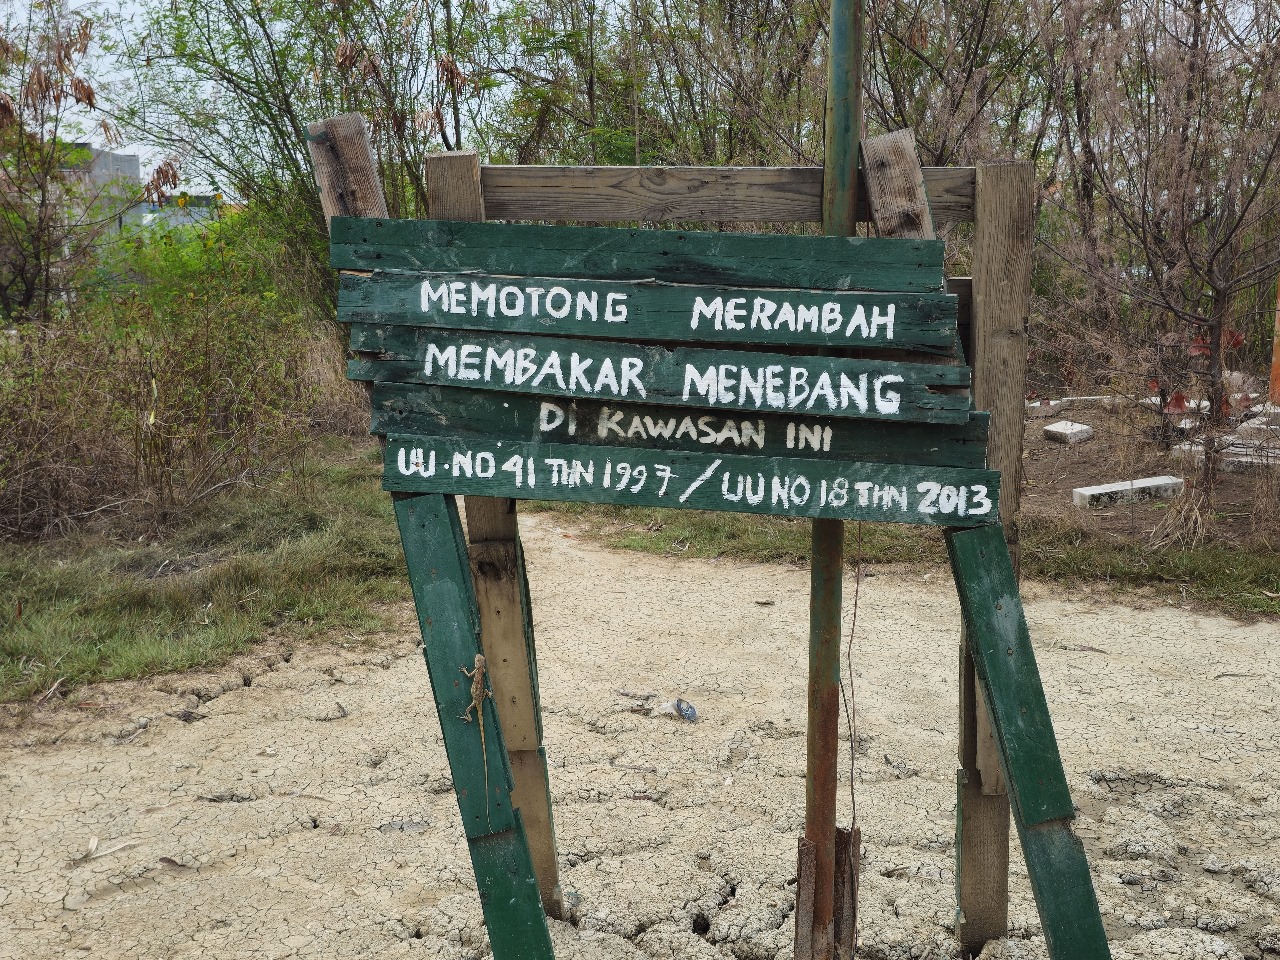 MEMOTONG MERAMBAH
MEMBAKAR MENEBANG
DI KAWASAN INI
UU.NO 41 THN 1997 / UU NO 18 THN 2013